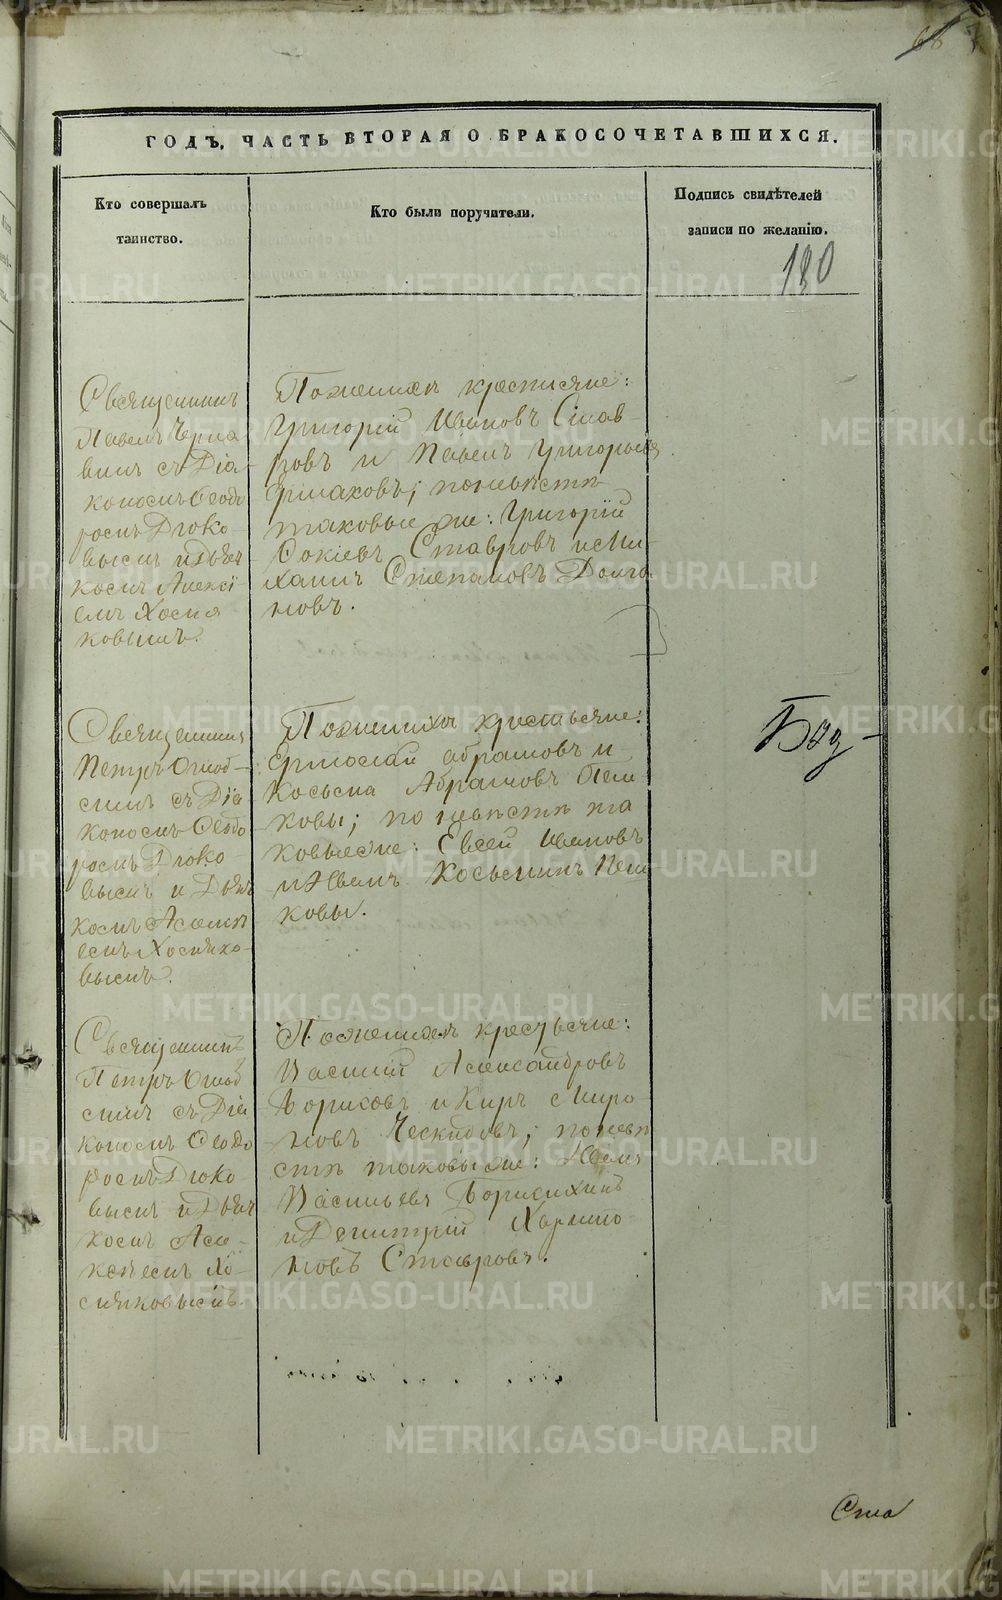 68
ГОДЪ, ЧАСТЬ ВТОРАЯ О БРАКОСОЧЕТАВШИХСЯ.
Кто совершалъ
таинство.
Кто были поручители.
Подпись свидѣтелей
записи по желанію.
180
Священникъ
Павелъ Черна
винъ съ Діа
кономъ Ѳеодо
ромъ Дюко
вымъ и Дьяч
комъ Алексі
емъ Хомя
ковымъ.
По женихѣ крестьяне:
Григорій Ивановъ Став
ровъ и Павелъ Григорьевъ
Ермаковъ; по невѣстѣ
таковые же: Григорій
Ѳокіевъ Ставровъ и Ми
хаилъ Степановъ Долга
новъ.
Священникъ
Петръ
съ Діа
кономъ Ѳеодо
ромъ Дюко
вымъ и Дьяч
комъ
емъ Хомяко
вымъ.
По женихѣ крестьяне:
Ермолай Абрамовъ и
Косьма Абрамовъ Пеш
ковы; по невѣстѣ та
ковые же: Евсей Ивановъ
и Иванъ Косьминъ Пеш
ковы.
Бяз-
Священникъ
Петръ
съ Діа
кономъ Ѳеодо
ромъ Дюко
вымъ и Дьяч
комъ Але
ксѣемъ Хо
мяковымъ.
По женихѣ крестьяне:
Василій Александровъ
Борисовъ и Киръ Миро
новъ; по невѣ
стѣ таковые же: Иванъ
Васильевъ Борисихинъ
и Димитрій
новъ Ставровъ.
Ста
METRIKI.GASO-URAL.RU